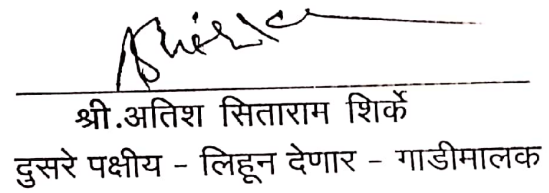 श्री.अतिश सिताराम शिर्के
दुसरे पक्षीय - लिहून देणार - गाडीमालक